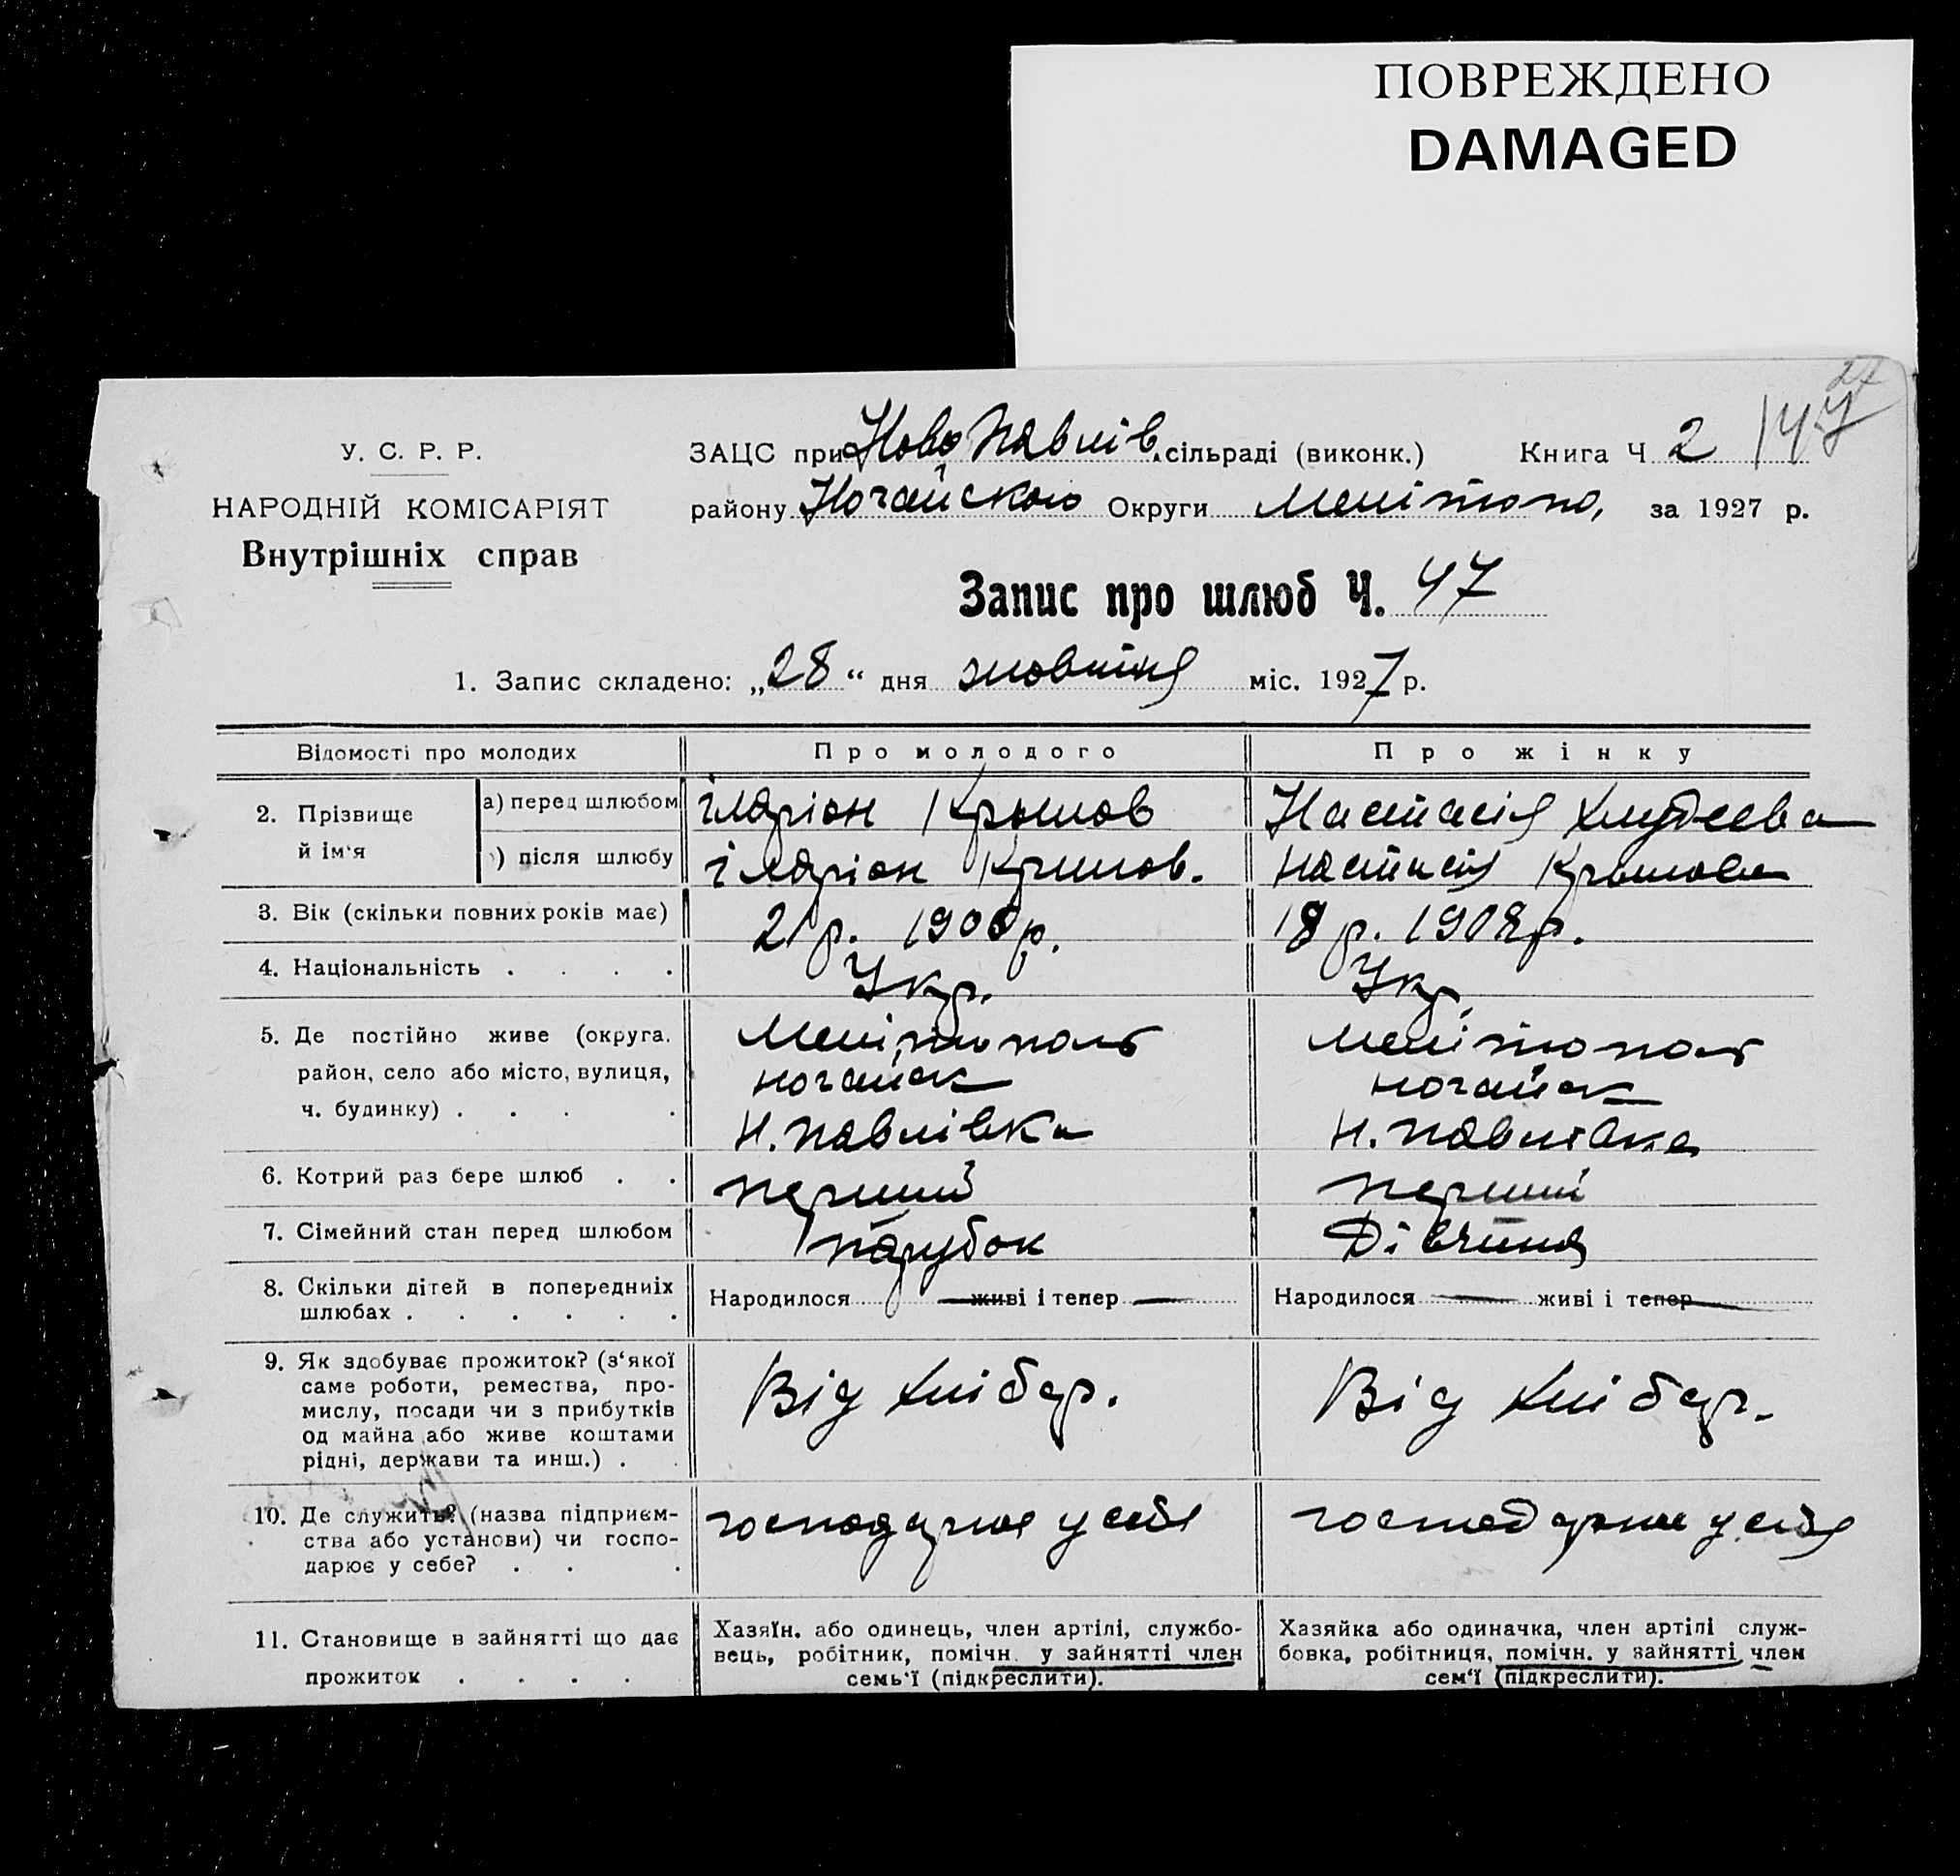 ПОВРЕЖДЕНО
DAMAGED
27
147
У. С. Р. Р.
НАРОДНІЙ КОМІСАРІЯТ
Внутрішніх справ
ЗАЦС при Ново Павлів. сільраді (виконк.) Книга Ч 2
району Ногайского Округи Мелітопо, за 1927 р.
Запис про шлюб Ч. 47
1. Запис складено: „28“ дня жовтня міс. 1927 р.
Відомості про молодих Про молодого Про жінку
2. Прізвище й ім‘я
а) перед шлюбом Іляріон Крылов Настасія
) після шлюбу Іляріон Крилов. Настасія Крылова
3. Вік (скільки повних років має) 21 р. 1906 р. 18 р. 1908 р.
4. Національність . . . . Укр. Укр.
5. Де постійно живе (округа. район, село або місто, вулиця, ч. будинку) . . . .
Мелітополь Мелітополь
Ногайск Ногайск
Н. Павлівка Н. Павлівка
6. Котрий раз бере шлюб . . перший перший
7. Сімейний стан перед шлюбом парубок Дівчина
8. Скільки дітей в попередниіх шлюбах . . . . . .
Народилося — живі і тепер — Народилося — живі і тепер —
9. Як здобуває прожиток? (з‘якої
саме роботи, ремества, про-
мислу, посади чи з прибутків
од майна або живе коштами
рідні, держави та инш.) . .
Від хлібор. Від хлібор.
10. Де служить? (назва підприєм-
ства або установи) чи госпо-
дарює у себе? . . .
господарює у себе господарює у себе
11. Становище в зайнятті що дає
прожиток . . . .
Хазяїн. або одинець, член артілі, службо-
вець, робітник, помічн. у зайнятті член
семь‘ї (підкреслити).
Хазяйка або одиначка, член артілі служ-
бовка, робітниця, помічн. у зайнятті член
сем‘ї (підкреслити).